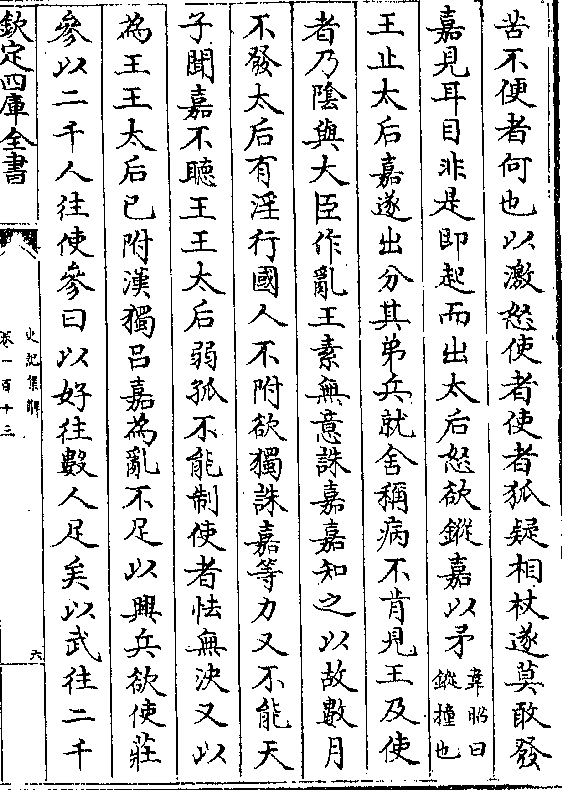 苦不便者何也以激怒使者使者狐疑相杖遂莫敢發
嘉見耳目非是即起而出太后怒欲鏦嘉以矛韋昭曰鏦撞也
王止太后嘉遂出分其弟兵就舍稱病不肯見王及使
者乃陰與大臣作亂王素無意誅嘉嘉知之以故數月
不發太后有淫行國人不附欲獨誅嘉等力又不能天
子聞嘉不聽王王太后弱孤不能制使者怯無決又以
為王王太后已附漢獨呂嘉為亂不足以興兵欲使莊
參以二千人往使參曰以好往數人足矣以武往二千
欽定四庫全書
史記集解
卷一百十三
六